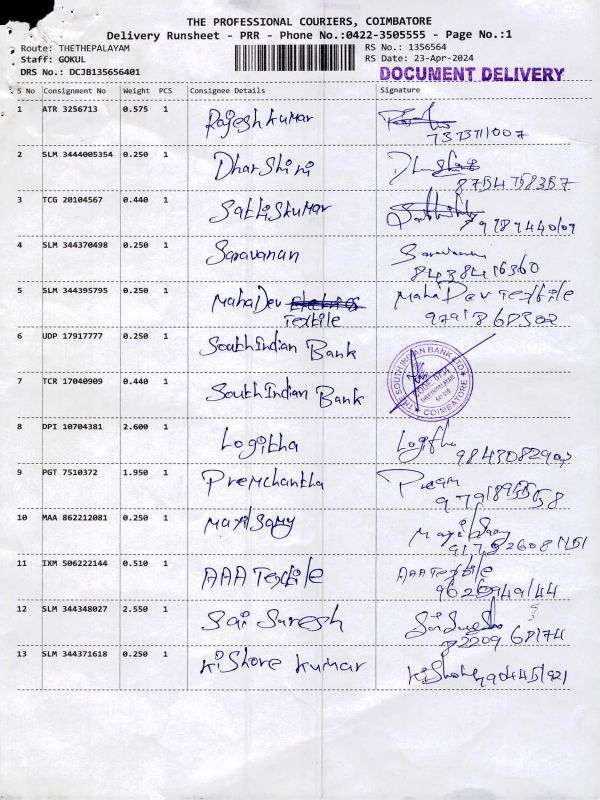 THE PROFESSIONAL COURIERS, COIMBATORE
Delivery Runsheet - PRR - Phone No.:0422-3505555 - Page No.:1
Route: THETHEPALAYAM RS No.: 1356564
Staff: GOKUL RS Date: 23-Apr-2024
DRS No.: DCJB135656401 DOCUMENT DELIVERY
S No Consignment No Weight PCS Consignee Details Signature
1 ATR 3256713 0.575 1 Rajesh kumar
7373711007
2 SLM 3444005354 0.250 1 Dharshini
8754758357
3 TCG 20104567 0.440 1 Sathiskumar
4 SLM 344370498 0.250 1 Saravanan Saravanan
8438416360
5 SLM 344395795 0.250 1 MahaDev MahaDev Textile
Textile 9791868302
6 UDP 17917777 0.250 1 South Indian Bank
7 TCR 17040909 0.440 1 South Indian Bank
THE SOUTH INDIAN BANK LTD
THEETHIPALAYAM
COIMBATORE
8 DPI 10704381 2.600 1 Logitha Logitha
9 PGT 7510372 1.950 1 Premchantha Prem
10 MAA 862212081 0.250 1 Mayilsamy
11 IXM 506222144 0.510 1 AAA Textile AAA Textile
9626949144
12 SLM 344348027 2.550 1 Sai Suresh
13 SLM 344371618 0.250 1 Kishore kumar